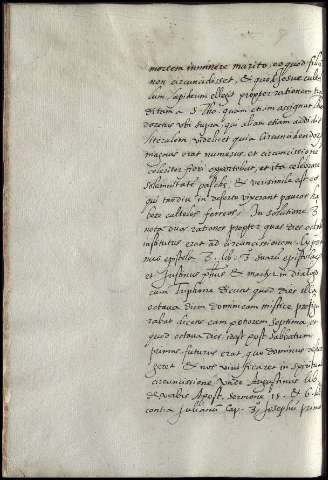 mortem innuere marito, eo quod filiu
non circuncidisset, et quod Josue cultel
lum lapideum elegit propter rationem tra
ditam a S. Tho. quam etiam assignat theo
doretus ubi supra, qui aliam etiam addidit
literalem videlicet quia circuncidendorum
magnus erat numerus et circuncissione
celeriter fieri oportebat, et ita celebrare
solemnitate paschæ, et verisimile est eos
qui tandiu in deserto vixerant paucos ha
bere cultellos ferreos. In solutione 3
nota duas rationes propter quas dies octaus
institutus erat ad circuncissionem. Cypria
nus epistola 8. lib. 3 suarum epistolarum
et Justinus philosophus et martyr in dialogo
cum Triphone dicunt quod dies illa
octaua diem dominicam mistice prefigu
rabat dicens eam potiorem septima, eo
quod octaua dies idest post sabbatum
primus futurus erat quo dominus resur
geret et nos viuificaret in spiritum
circuncissione. Unde Augustinus lib.
de verbis Apost. sermone 15. et 6. lib.
contra Julianum Cap. 3. Josephus primo